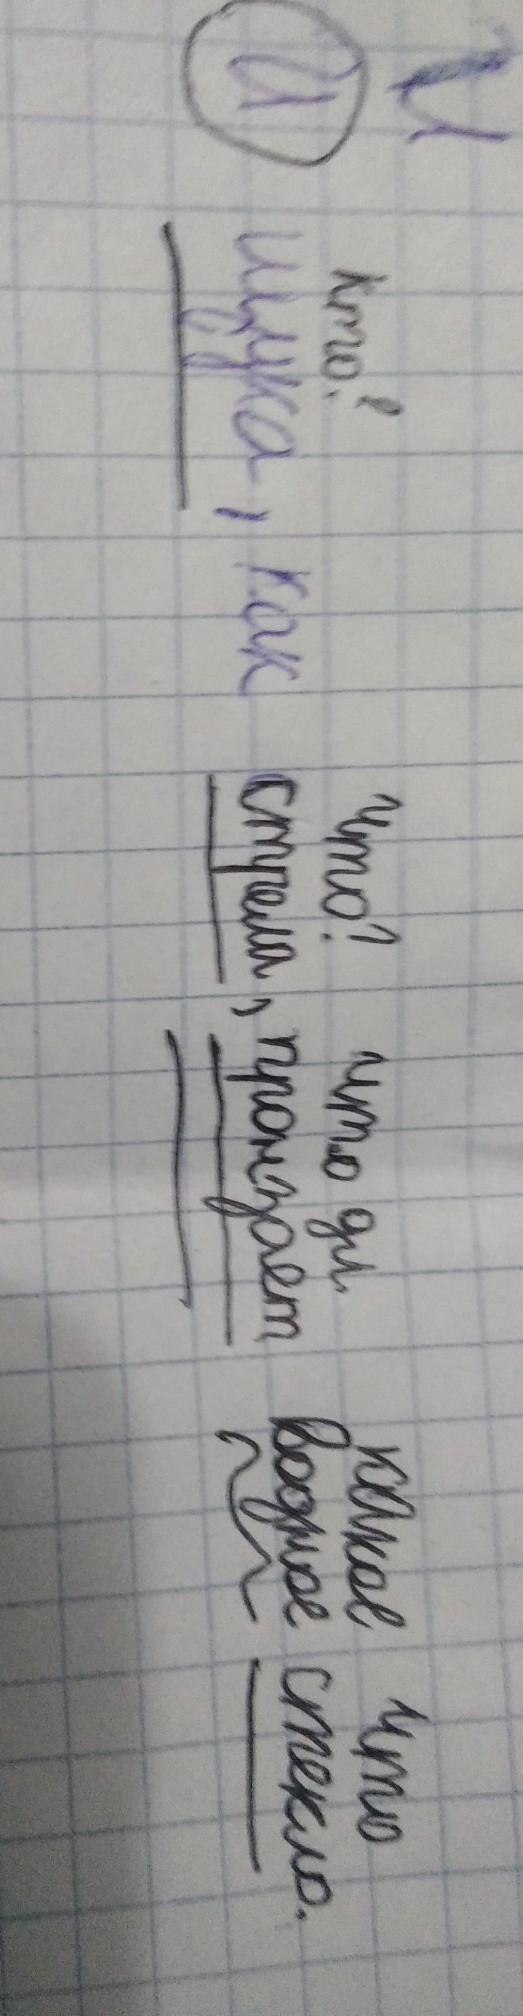 И
кто? что? что дл. какое что
И щука, как стрела, пронзает водное стекло.